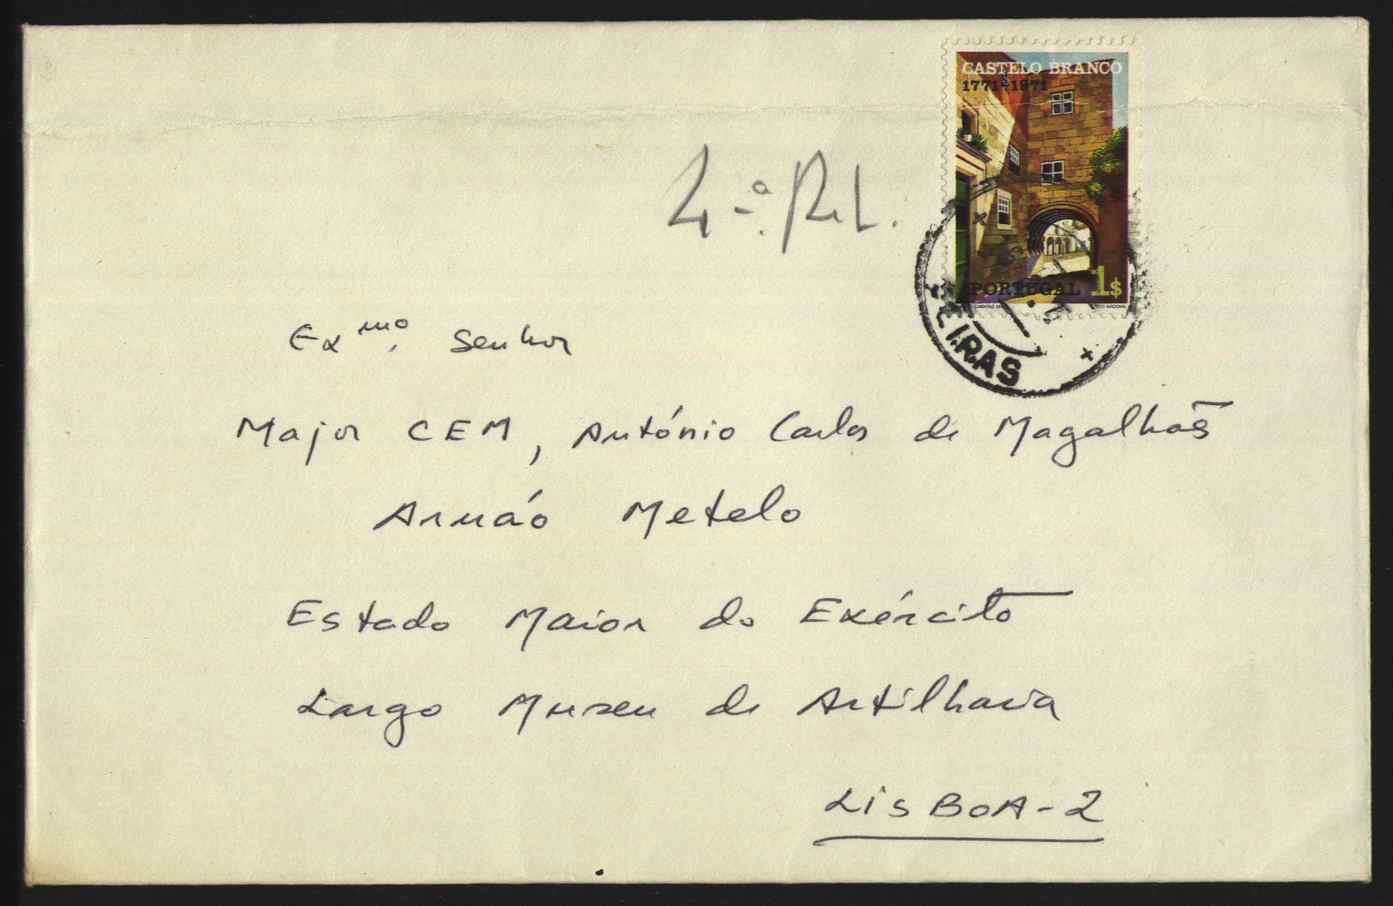 CASTELO BRANCO
1771-1971
4-ª. Rel.
PORTUGAL 1$
EIRAS
Exmo. Senhor
Major CEM, António Carlos de Magalhães
Arnáo Metelo
Estado Maior do Exército
Largo Museu de Artilharia
LISBOA-2